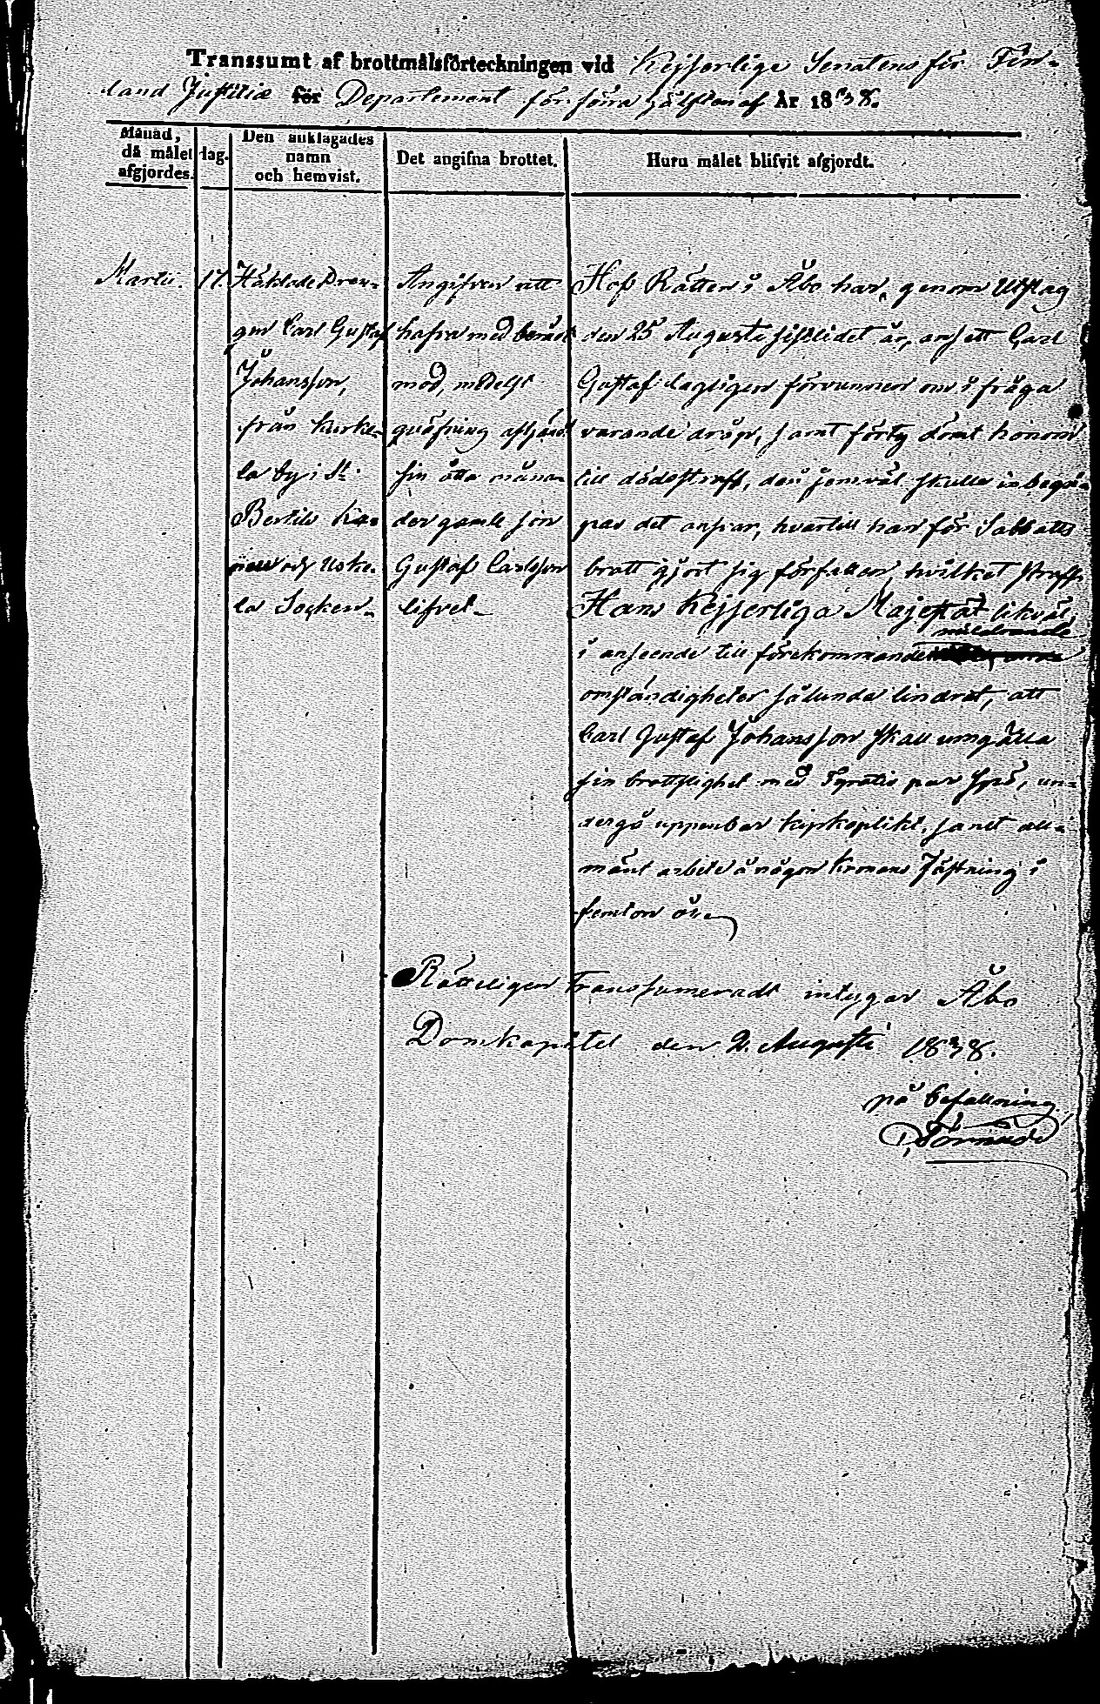 Transsumt af brottmålsförteckningen vid Kejserlige Senatens för Fin-
land Justitiæ för Departement för förra hälften af År 1838.
Månad,
då målet
afgjordes.
dag.
Den anklagades
namn
och hemvist.
Det angifna brottet.
Huru målet blifvit afgjordt.
Martii.
17.
Häktade Dren-
gen Carl Gustaf
Johansson,
från Kurke-
la by i St
Bertils Ka-
och Uske-
la Socken.
Angifven att
hafva med berådt
mod, medelst
qväfning afhändt
sin åtta måna-
der gamle son
Gustaf Carlsson
lifvet.
Hof Rätten i Åbo har, genom Utslag
den 25 Augusti sistlidet år, ansett Carl
Gustaf lagligen förvunnen om i fråga
varande dråp, samt förty dömt honom
till dödsstraff, den jemväl skulle inbegri-
pas det ansvar, hvartill han för Sabbaths
brott gjort sig förfallen, hvilket straff
Hans Kejserliga Majestät likväl,
i anseende till förekommande mildrande
omständigheter sålunda lindrat, att
Carl Gustaf Johansson skall umgälla
sin brottslighet med Fyratio par spö, un-
dergå uppenbar kyrkoplikt, samt all-
mänt arbete å någon Kronans Fästning i
femton år.
Rätteligen transsumeradt intygar Åbo
Domkapitel den 2. Augusti 1838.
på befallning